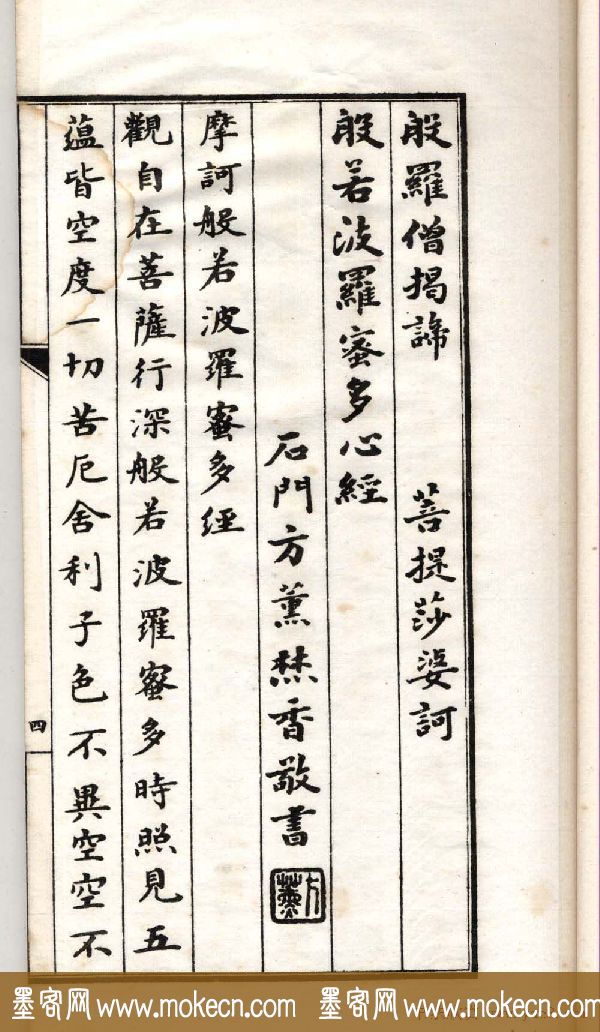 般羅僧揭諦 菩提莎婆訶
般若波羅蜜多心經
石門方薰焚香敬書
方薰
摩訶般若波羅蜜多經
觀自在菩薩行深般若波羅蜜多時照見五
蘊皆空度一切苦厄舍利子色不異空空不
四
墨客网 www.mokecn.com 墨客网 www.mokecn.com